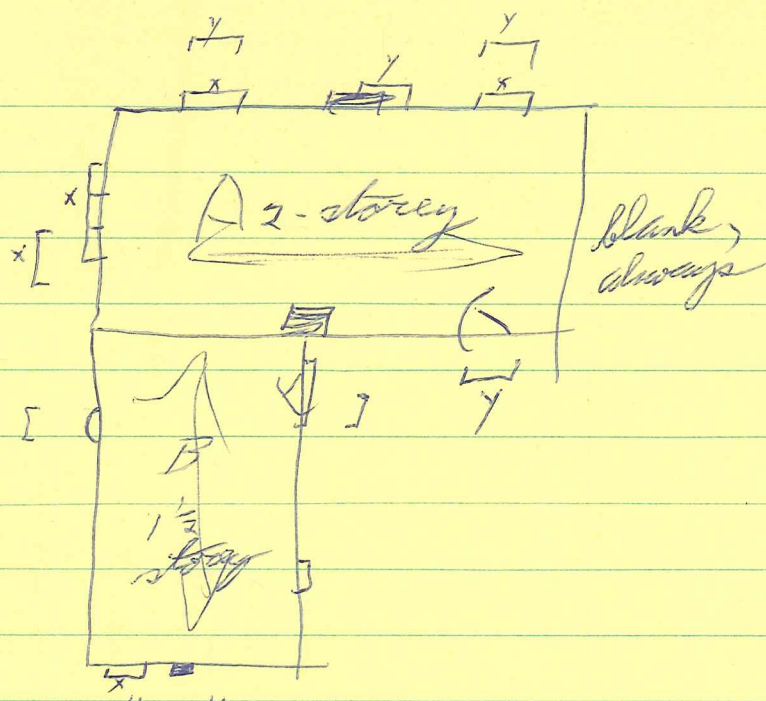 y y
x y x
x
A 2-storey
blank,
always
x
y
B
1 1/2
storey
x